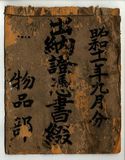 昭和十一年九月分
出納證憑書綴
物品部